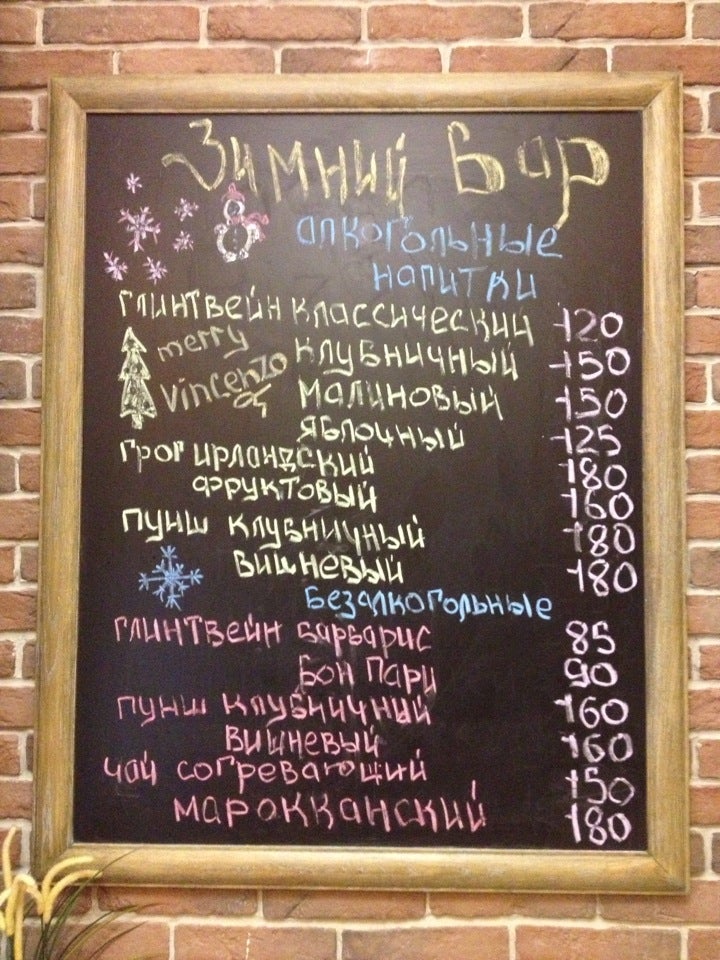 Зимний бар
алкогольные
напитки
глинтвейн классический 120
merry
клубничный 150
vincenzo
малиновый 150
яблочный 125
грог ирландский 180
фруктовый 160
пунш клубничный 180
вишневый 180
безалкогольные
глинтвейн барбарис 85
бон пари 90
пунш клубничный 160
вишневый 160
чай согревающий 150
марокканский 180